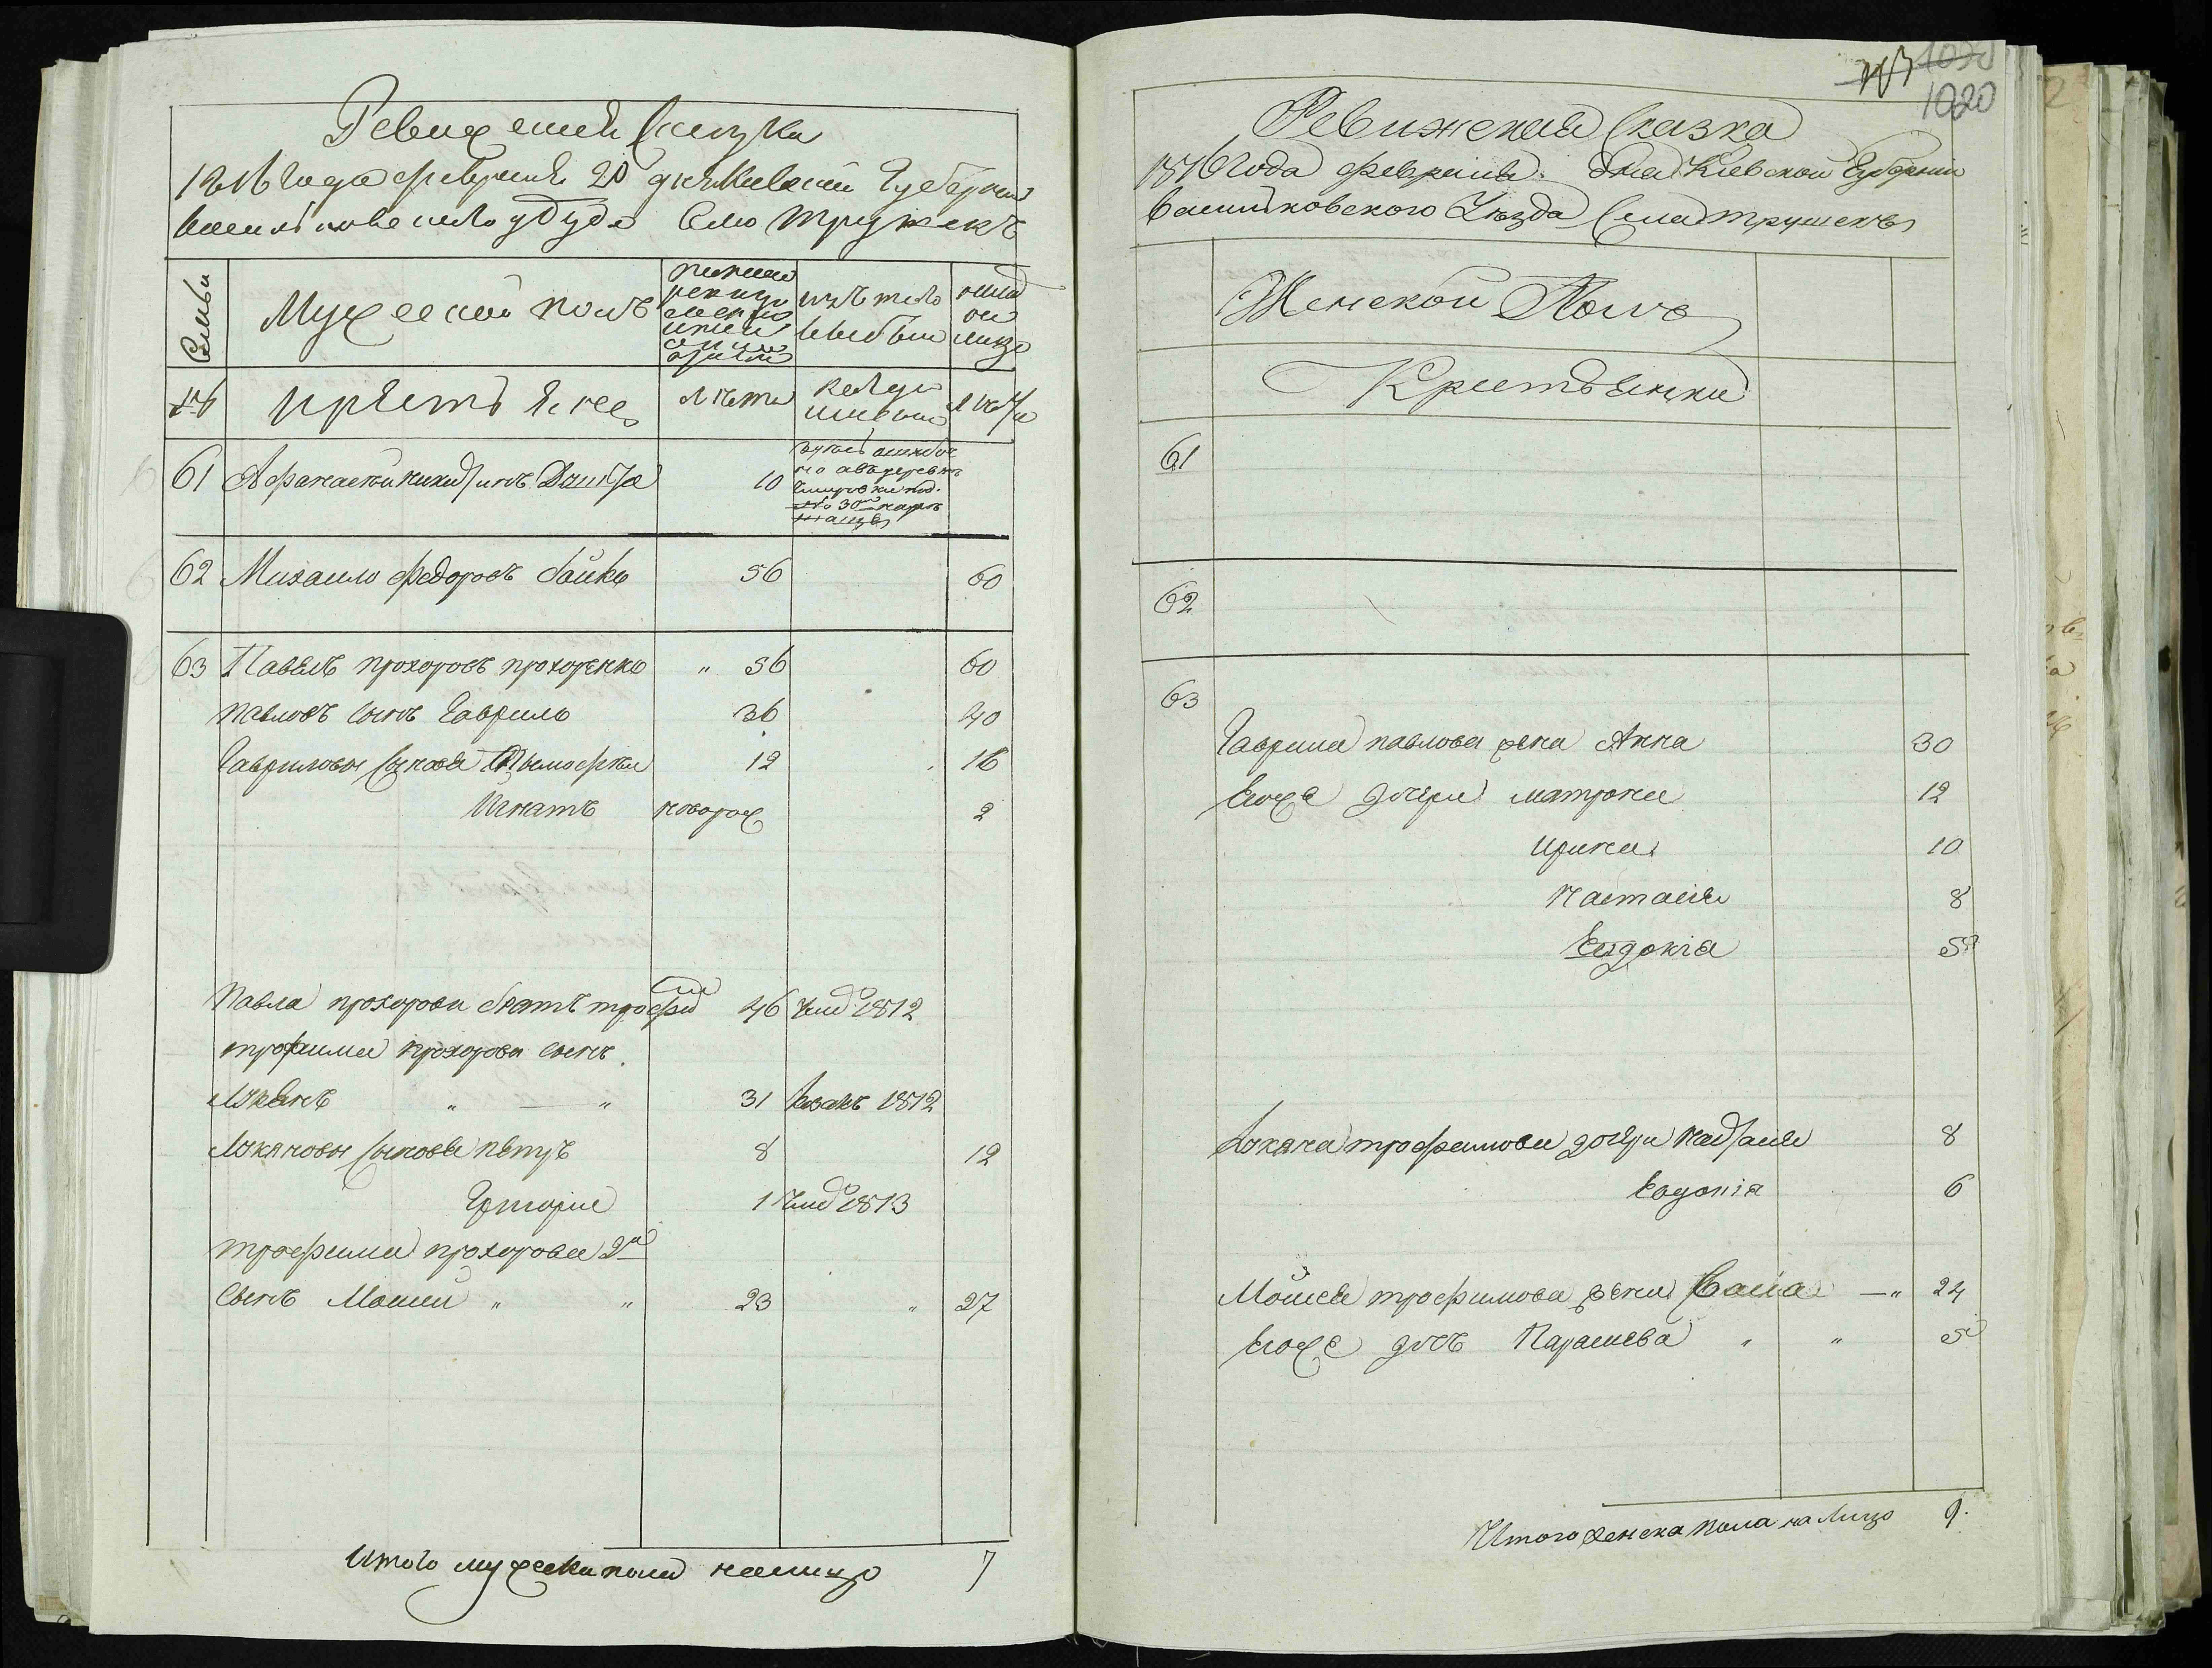 Ревижская Сказка
1816 Года февраля 20 дня Киевской Губернии
Васильковского уезда Села Трушекъ
Семьи
Мужеской полъ
изъ того
выбыло
нынѣ
на
лицо
№
крестьяне
Лѣта
когда
имянно
Лѣта
61 Афанасей никитинъ
10
62 Михаило федоровъ бойко 56 60
63 Павелъ прохоровъ прохоренко " 56 60
павловъ сынъ Гаврило 36 40
Гавриловы сыновья Тимофей 12 16
Игнатъ новорож 2
Павла прохорова братъ трофим 46 умер 1812
трофима прохорова сынъ
Лукянъ " — " 31 казакъ 1812
Лукяновы сыновья петръ 8 12
Григорие 1 умер 1813
трофима прохорова 2й
сынъ Мойсей " " 23 " 27
Итого мужеска пола налицо 7
1020
1020
Ревижская Сказка
1816 Года февраля дня Киевской Губернии
Васильковского Уезда Села трушекъ
Женской Полъ
Крестьянки
61
62
63
Гаврила павлова жена Анна 30
Егоже дочери матрона 12
ирина 10
Настасия 8
Евдокия 5
Лукяна трофимова дочери настасия 8
Евдокия 6
Мойсея трофимова жена —" 24
Егоже дочь Параскева " " 5
Итого женска пола на лицо 9.